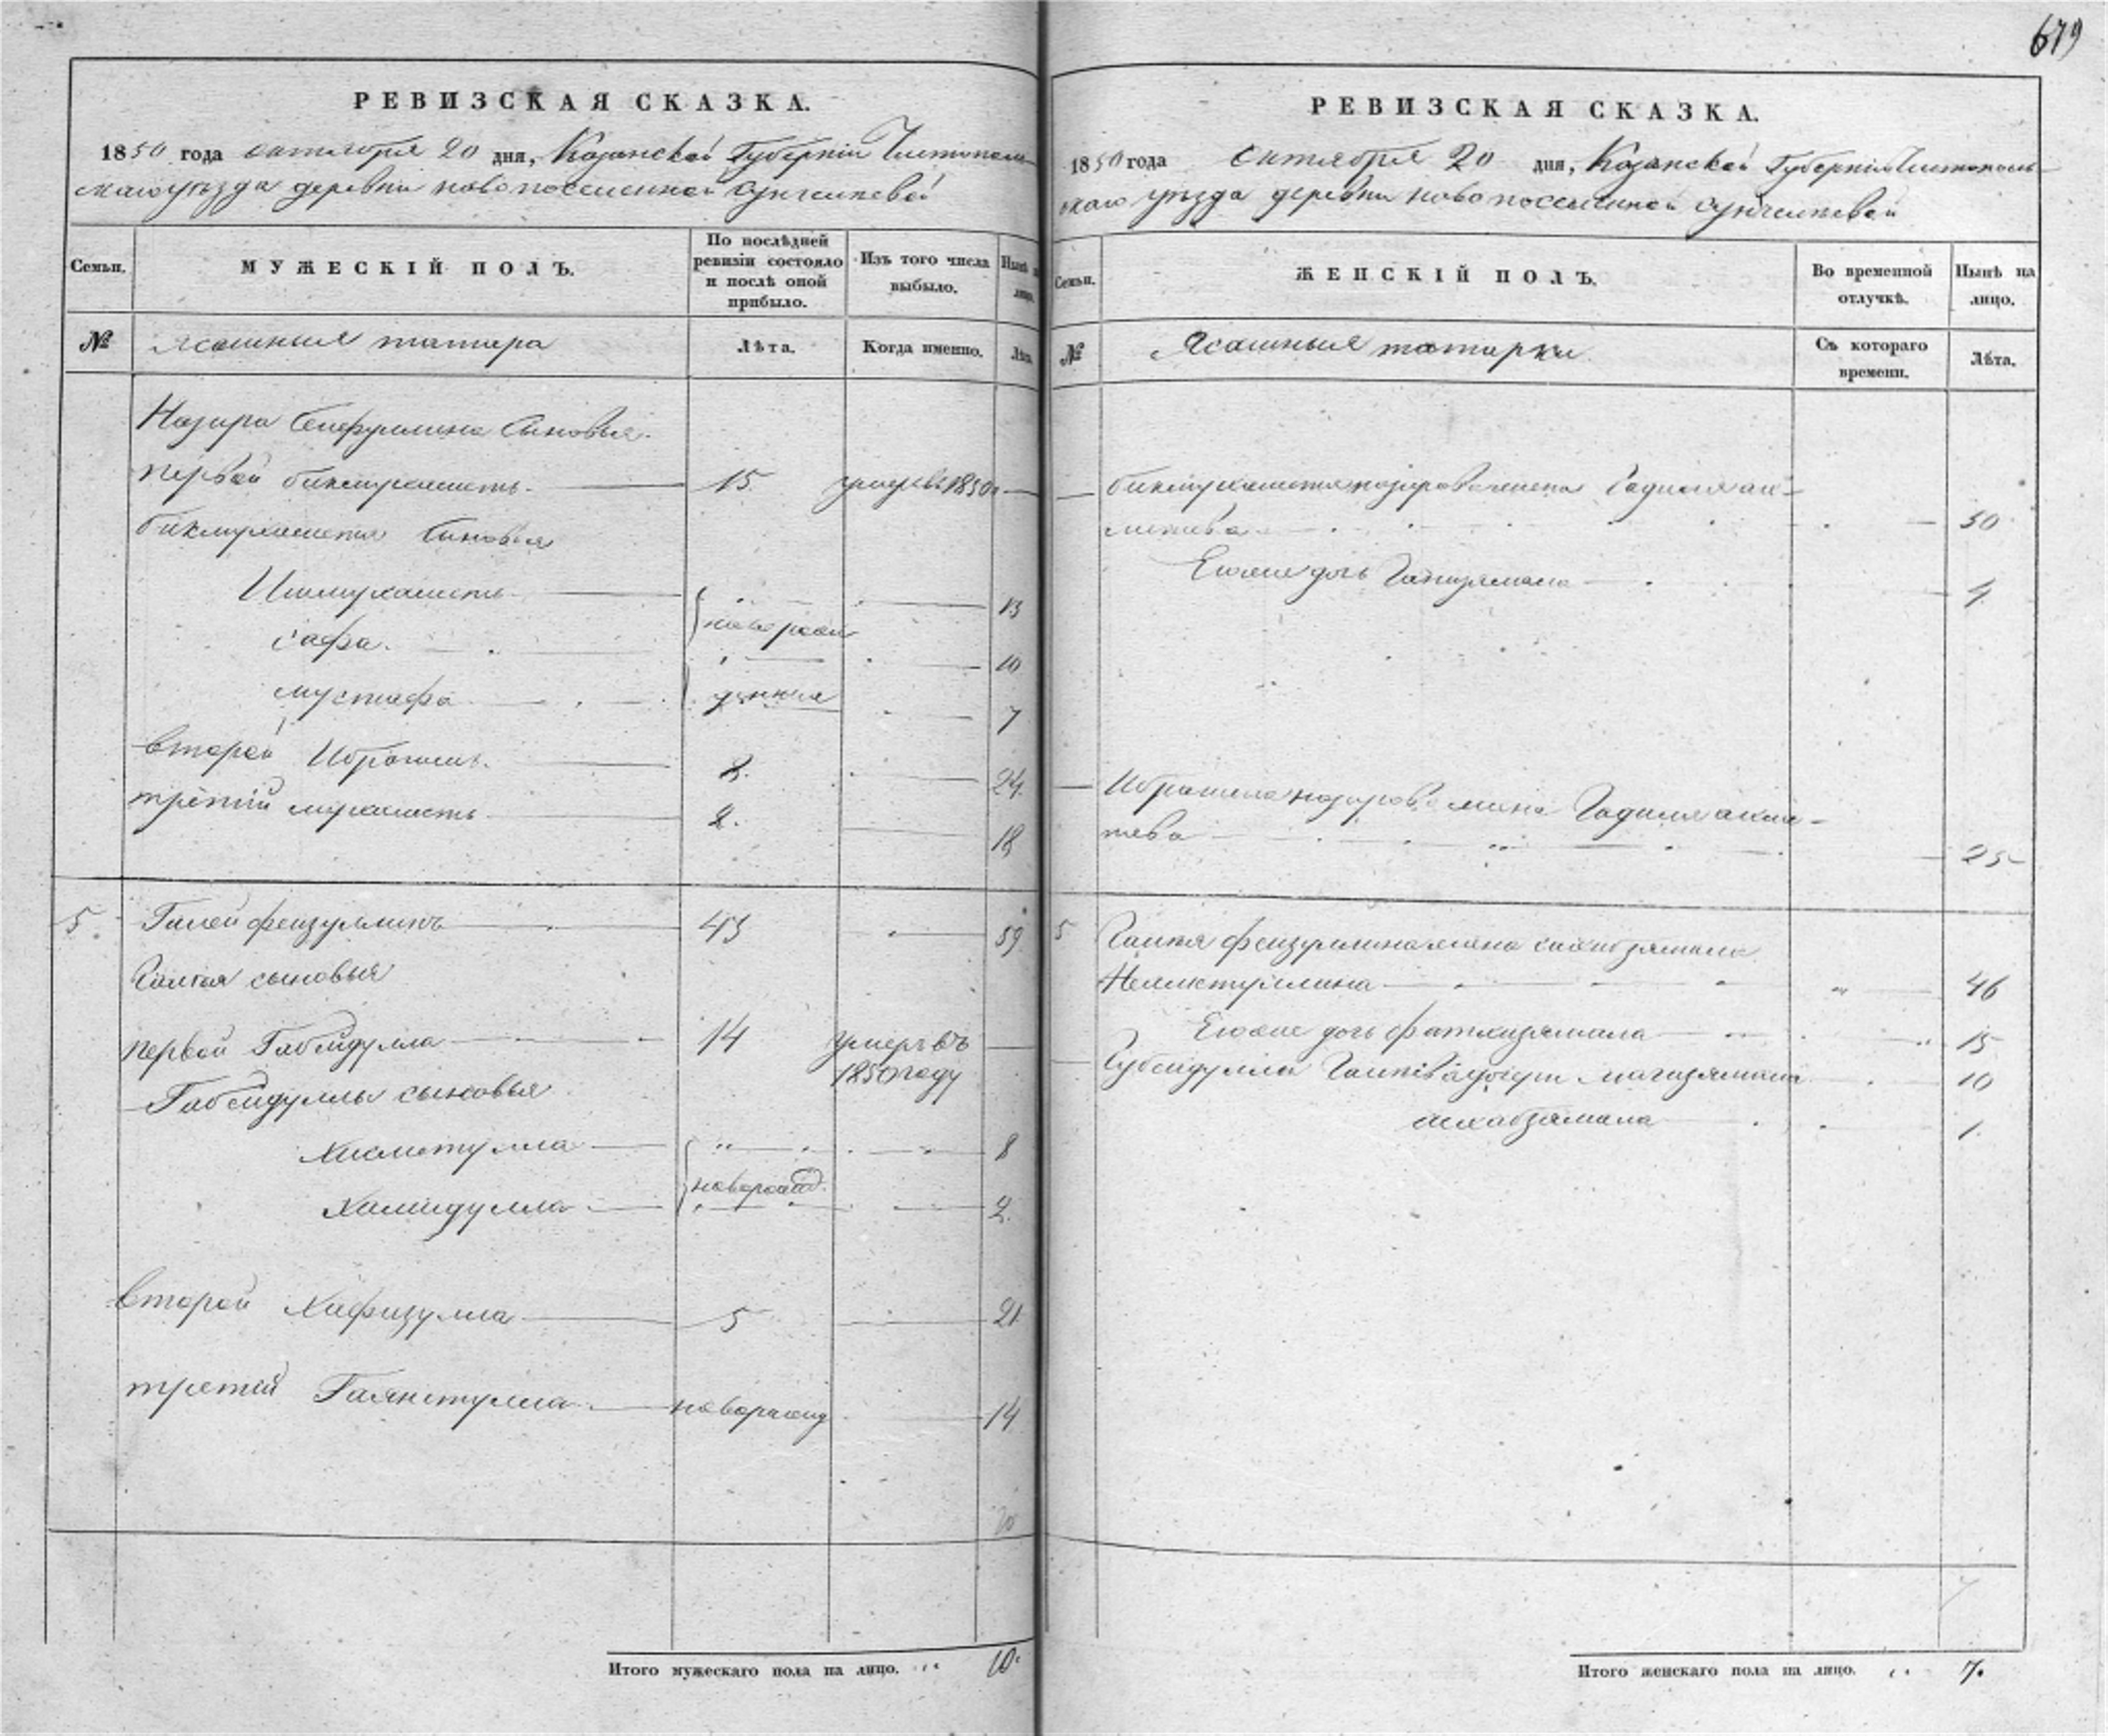 679
РЕВИЗСКАЯ СКАЗКА.
1850 года октября 20 дня, Казанской Губернiи Чистополь-
скаго уѣзда деревни новопоселенной
Семьи.
МУЖЕСКІЙ ПОЛЪ.
По послѣдней ревизіи состояло и послѣ оной прибыло.
Изъ того числа выбыло.
Нынѣ на лицо.
№
Ясашныя татара
Лѣта.
Когда именно.
Лѣта.
Назира Сейфуллина сыновья.
первой бикмухаметь 15 умеръ 1850
бикмухаметя сыновья
Ишмухаметь 13
сафа. новорож 10
мустафа денныя 7
второй Ибрагимъ. 8. 24.
третiй мухаметь 2. 18
5 Галей фейзуллинъ 43 59
Галея сыновья
первой Габейдулла 14 умеръ въ
1850 году
Габейдуллы сыновья
Хисметулла 8
новорожд.
Хамидулла 2.
второй Хафизулла 5 21
третiй Гаянетулла новорожд 14
Итого мужескаго пола на лицо. 10.
РЕВИЗСКАЯ СКАЗКА.
1850 года октября 20 дня, Казанской Губернiи Чистополь-
скаго уѣзда деревни новопоселенной
Семьи.
ЖЕНСКІЙ ПОЛЪ.
Во временной отлучкѣ.
Нынѣ на лицо.
№
Ясашныя татарки
Съ котораго времени.
Лѣта.
бикмухаметя назирова жена
30
Ея же дочь
Ибрагима назирова жена Гадиля ахме-
това 25
5 Галея фейзуллина жена
46
Ея же дочь фатхизямала 15
Габейдуллы дочери магизямала 10
1.
Итого женскаго пола на лицо. 7.